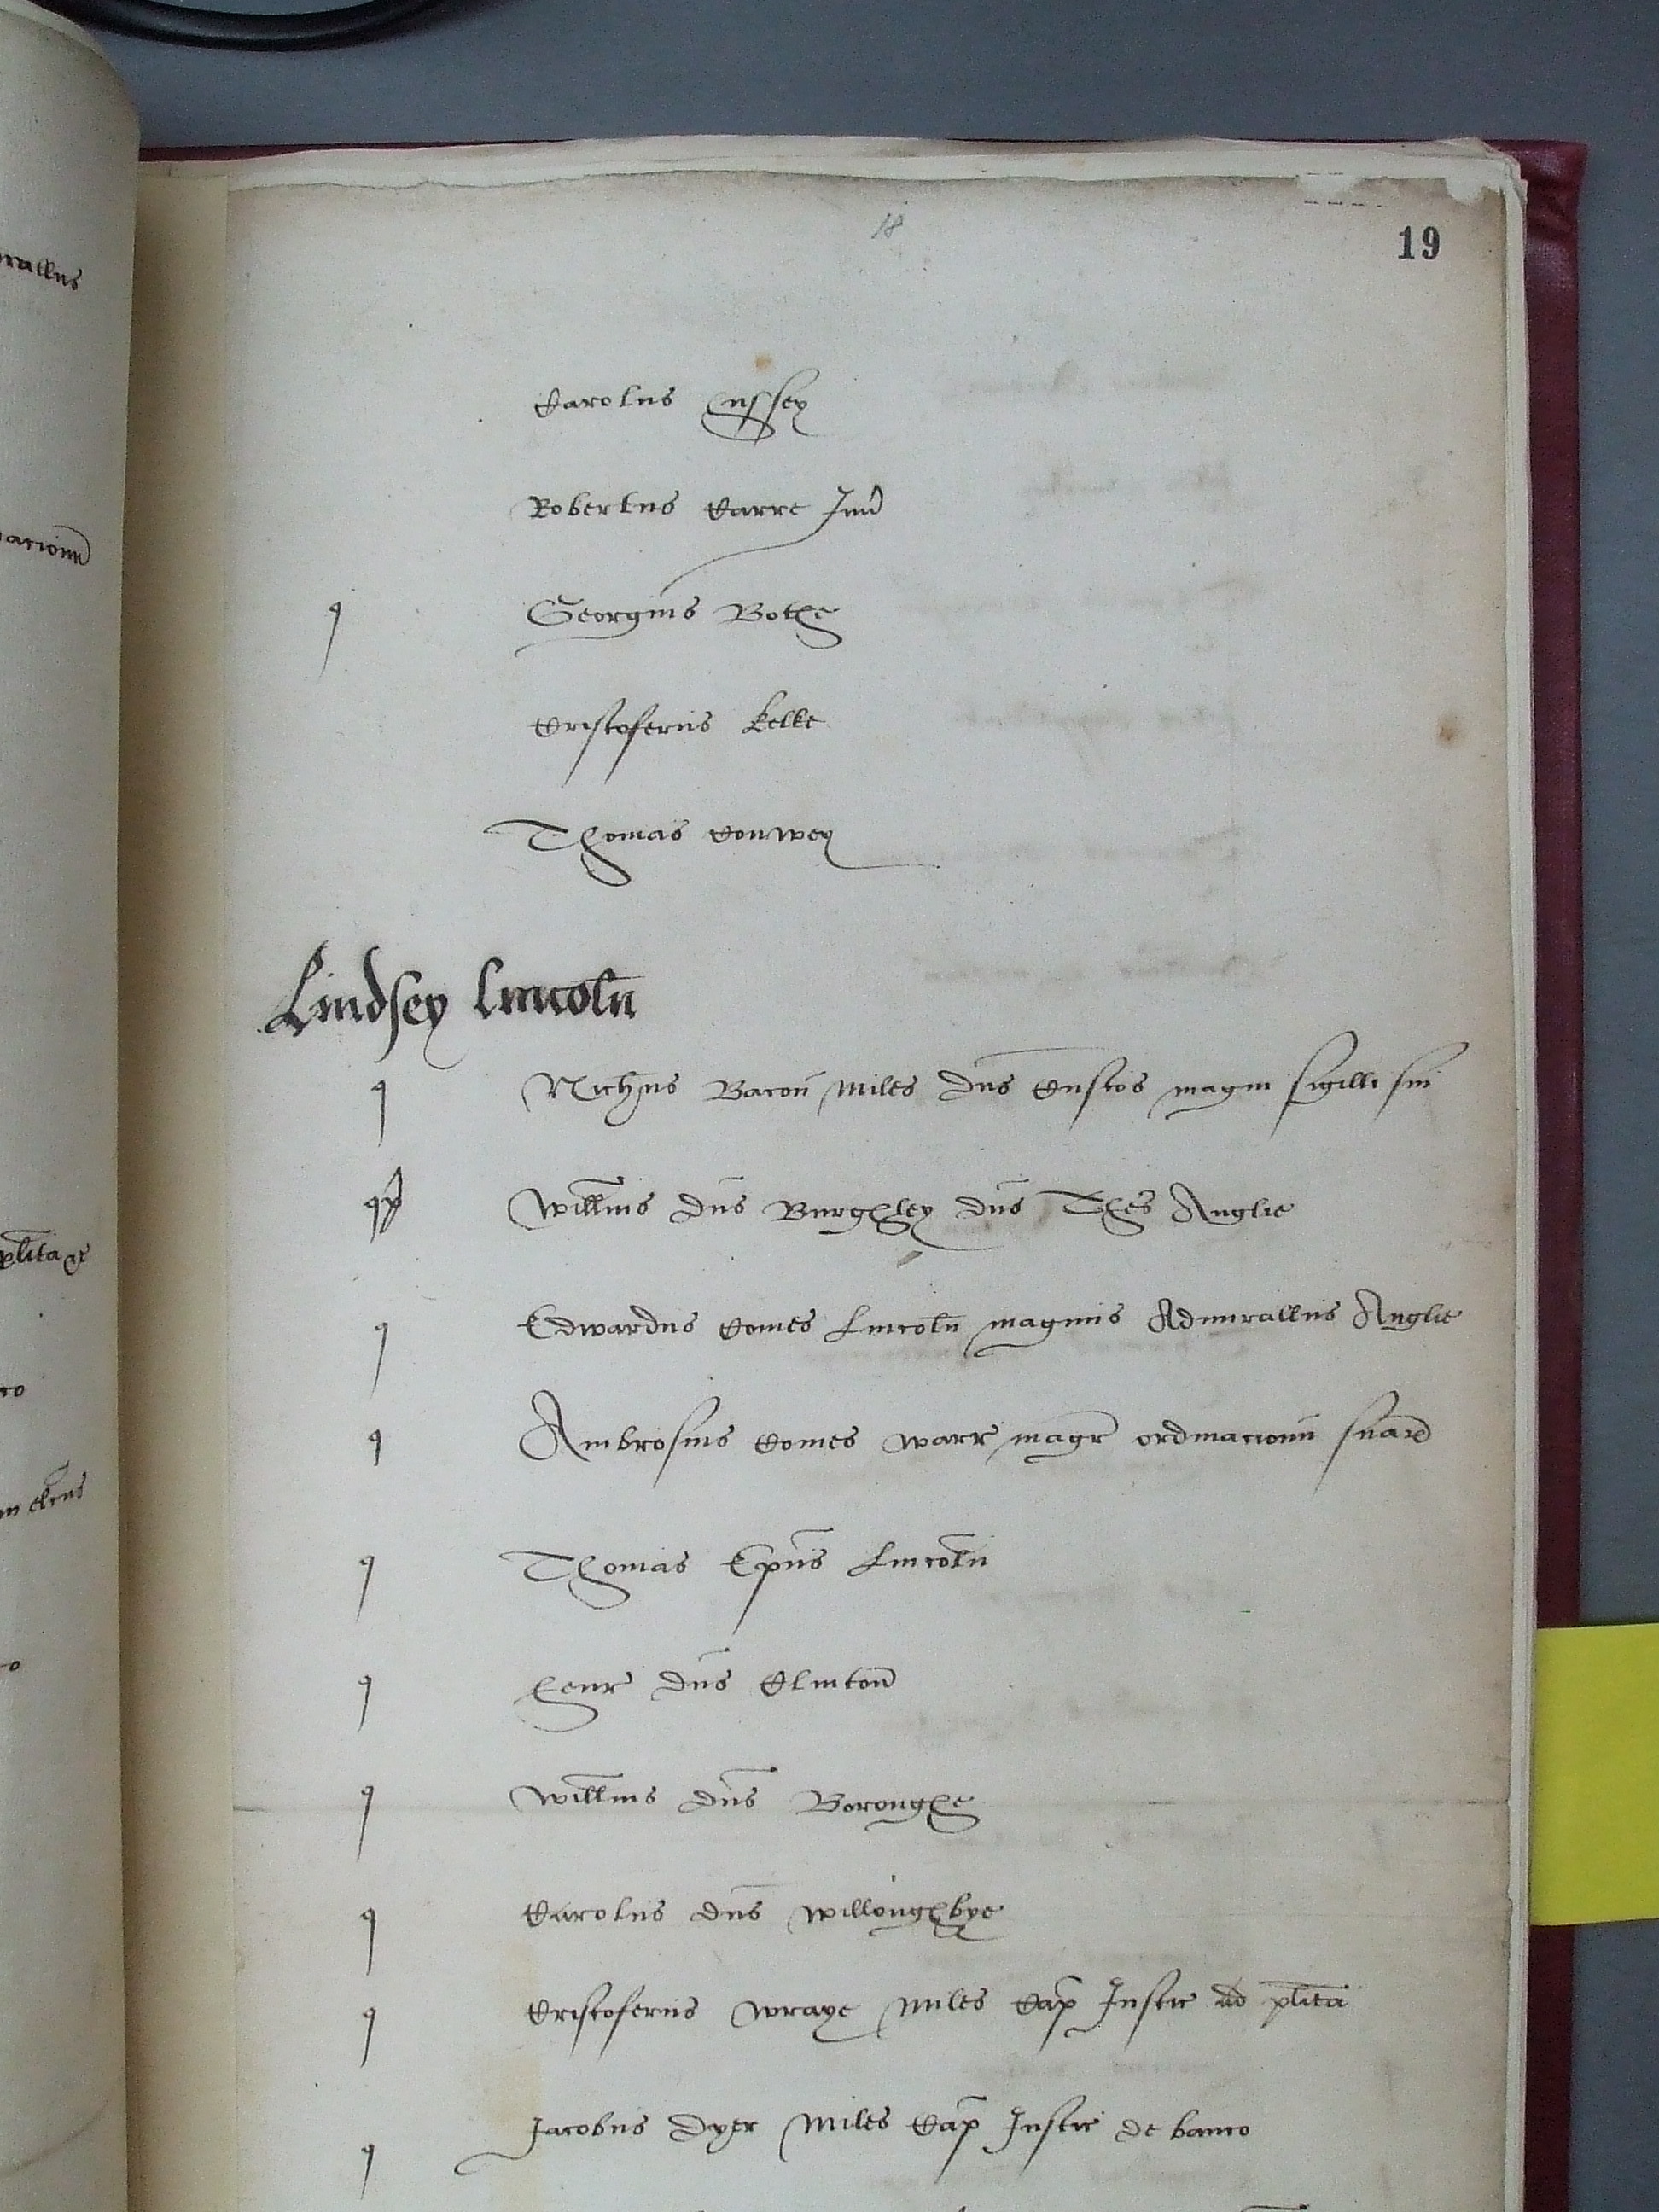 18
19
rallus
Carolus Cussey
Robertus Carre Jun
acionu
q Georgius Bothe
Cristoferus Kelke
Thomas Conwey
Lindsey Lincoln
q Nichus Bacon Miles dns Custos magni sigilli sui
q Willms dns Burghley dns Thes Anglie
plita
q Edwardus Comes Lincoln magnus Admirallus Anglie
co
q Ambrosius Comes Warr magr ordinacionu suar
q Thomas Epus Lincoln
q Henr dns Clinton
q Willms dns Boroughe
q Carolus dns Willoughbye
q Cristoferus Wraye Miles Cap Justic ad plita
q Jacobus Dyer Miles Cap Justic de banco